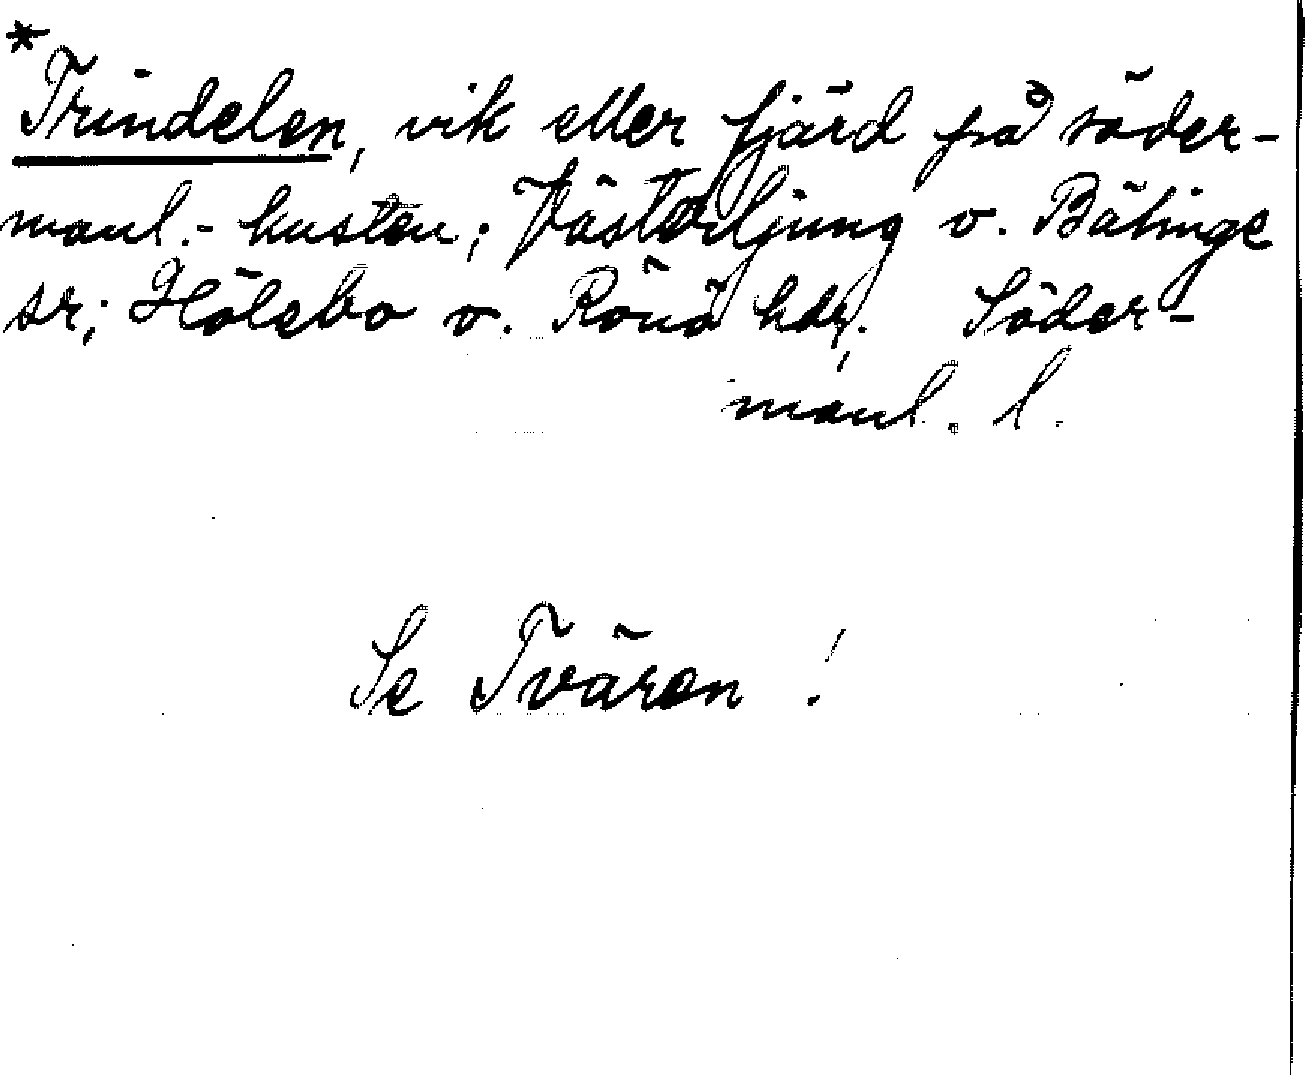 *Trindelen, vik eller fjärd på söder-
manl.-kusten; Västerljung o. Bälinge
sr; Hölebo o. Rönö hdr. Söder-
manl. l.
Se Tvären!